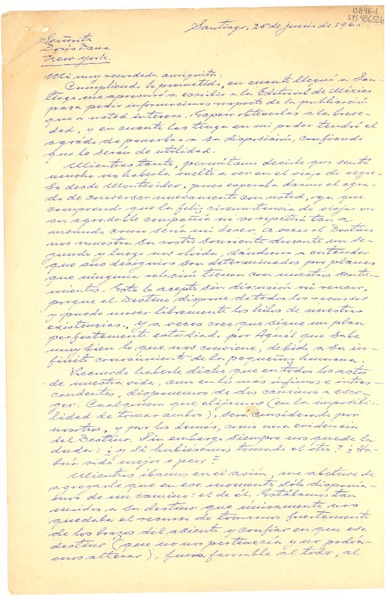 Santiago, 25 de junio de 1960.
Señorita
Doris Dana
New York.
Mi muy recordada amiguita:
Cumpliendo lo prometido, en cuanto llegué a San-
tiago me apresuré a escribir a la Editorial de México
para pedir informaciones respecto de la publicación
que a usted interesa. Espero obtenerlas a la breve-
dad, y en cuanto las tenga en mi poder tendré el
agrado de ponerlas a su disposición, confiando
que le serán de utilidad.
Mientras tanto, permítame decirle que sentí
mucho no haberla vuelto a ver en el viaje de regre-
so desde Montevideo, pues esperaba darme el agra-
do de conversar nuevamente con usted, ya que
comprendo que la feliz circunstancia de viajar en
su agradable compañía no se repetirá tan a
menudo como sería mi deseo. A veces el Destino
nos muestra su rostro sonriente durante un se-
gundo y luego nos olvida, dándonos a entender
que sus designios son determinados por planes
que ninguna relación tienen con nuestros senti-
mientos. Esto lo acepto sin discusión ni rencor,
porque el Destino dispone de todos los recursos
y puede mover libremente los hilos de nuestras
existencias, y a veces creo que sigue un plan
perfectamente estudiado, por Aquél que sabe
muy bien lo que nos conviene, debido a su in-
finito conocimiento de la pequeñez humana.
Recuerdo haberle dicho que en todos los actos
de nuestra vida, aun en los más ínfimos e intras-
cendentes, disponemos de dos caminos a esco-
ger. Cualquiera que elijamos (en la imposibi-
lidad de tomar ambos), será considerado por
nosotros, y por los demás, como una evidencia
del Destino. Sin embargo siempre nos queda la
duda: ¿y si hubiéramos tomado el otro? ¿Ha-
bría sido mejor o peor?
Mientras íbamos en el avión, me abstuve de
agregarle que en ese momento sólo disponía-
mos de un camino: el de él. Estábamos tan
unidos a su destino que únicamente nos
quedaba el recurso de tomarnos fuertemente
de los brazos del asiento y confiar en que ese
destino (que no nos pertenecía y no podía-
mos alterar), fuera favorable al todo, al